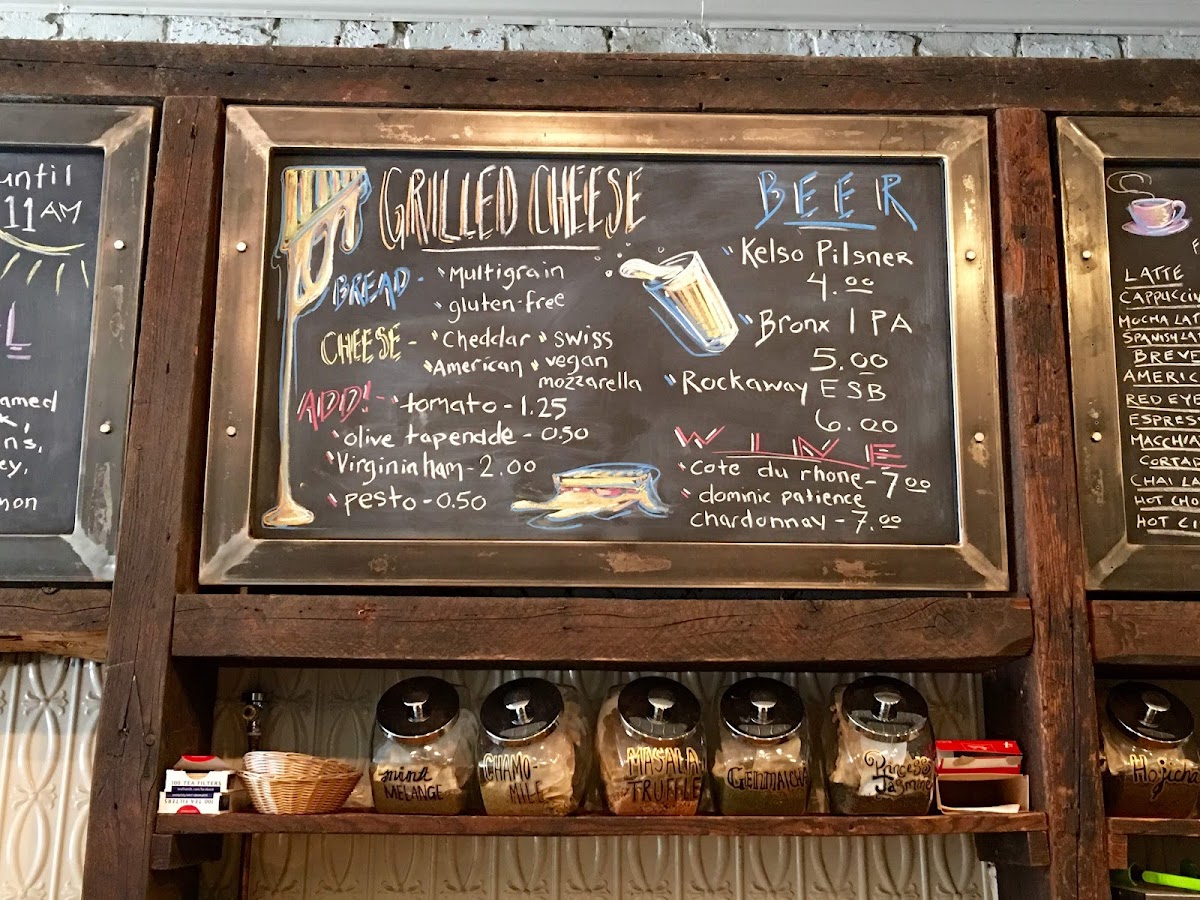 until
11 AM
GRILLED CHEESE
BREAD - Multigrain
gluten-free
CHEESE - Cheddar swiss
American vegan
mozzarella
ADD! - tomato - 1.25
olive tapenade - 0.50
Virginin ham - 2.00
pesto - 0.50
BEER
Kelso Pilsner
4.00
Bronx IPA
5.00
Rockaway ESB
6.00
WINE
cote du rhone - 7.00
dominic patience
chardonnay - 7.00
LATTE
CAPPUCCIN
MOCHA LAT
SPANISH LAT
BREVE
AMERIC
RED EYE
ESPRESS
MACCHIA
CORTAD
CHAI LA
HOT CHO
HOT CI
100 TEA FILTERS
mind MELANGE
CHAMO-
MILE
MASALA
TRUFFLE
GENMAICHA
Princess
Jasmine
Hojicha